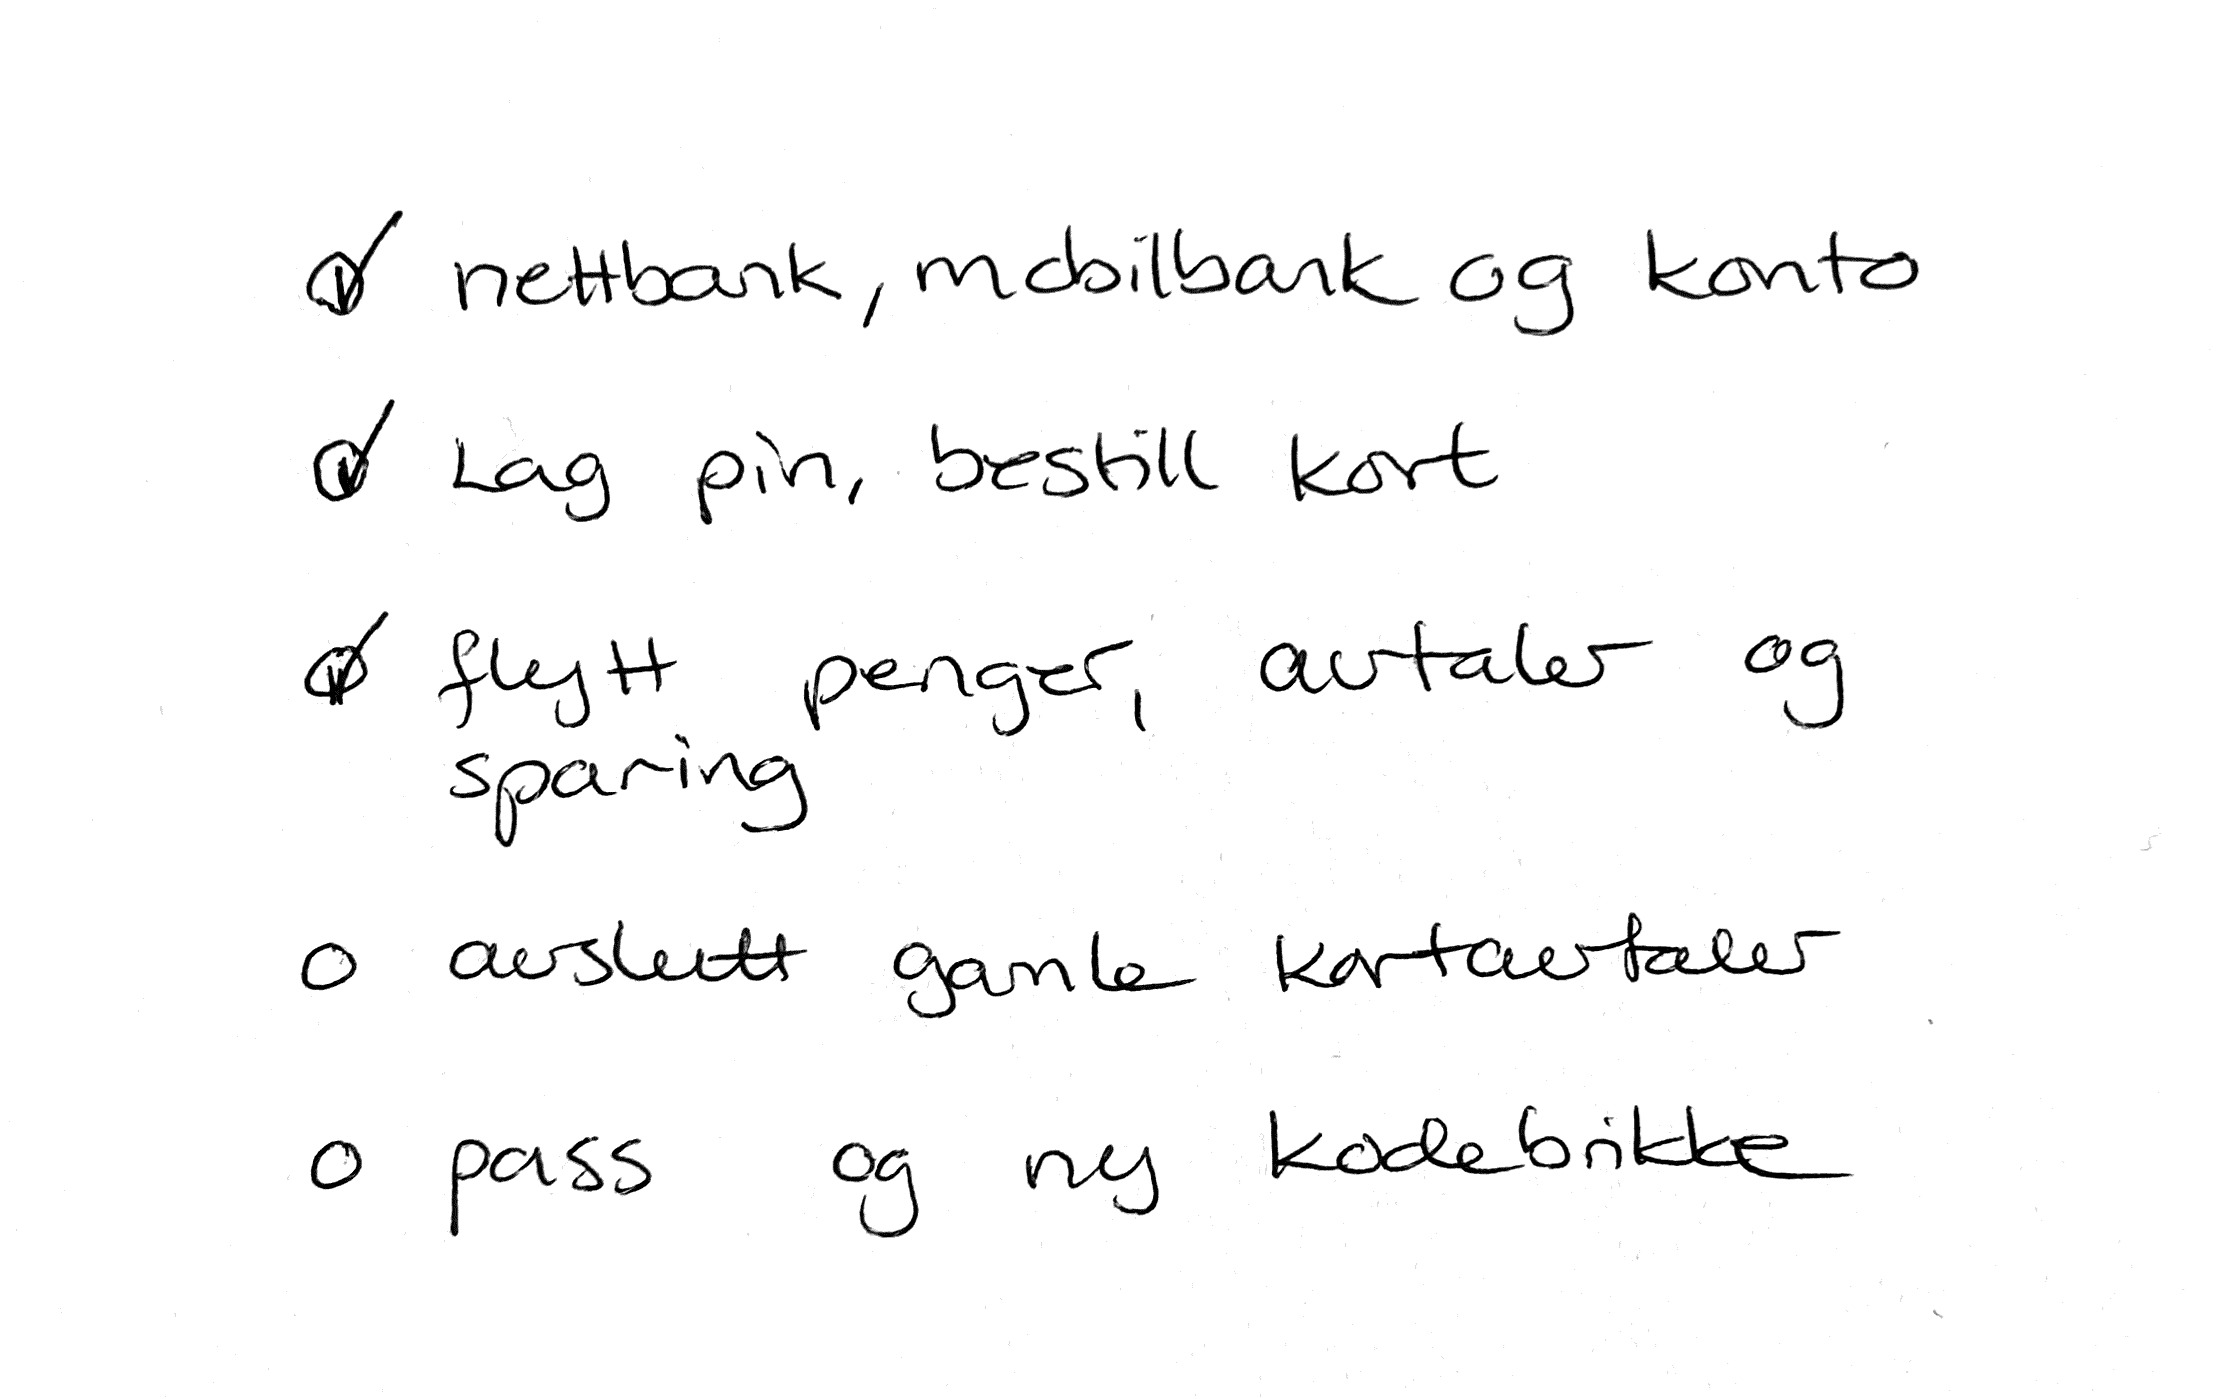 nettbank, mobilbank og konto
Lag pin, bestill kort
flytt penger, avtaler og
sparing
avslutt gamle kortavtaler
pass og ny kodebrikke